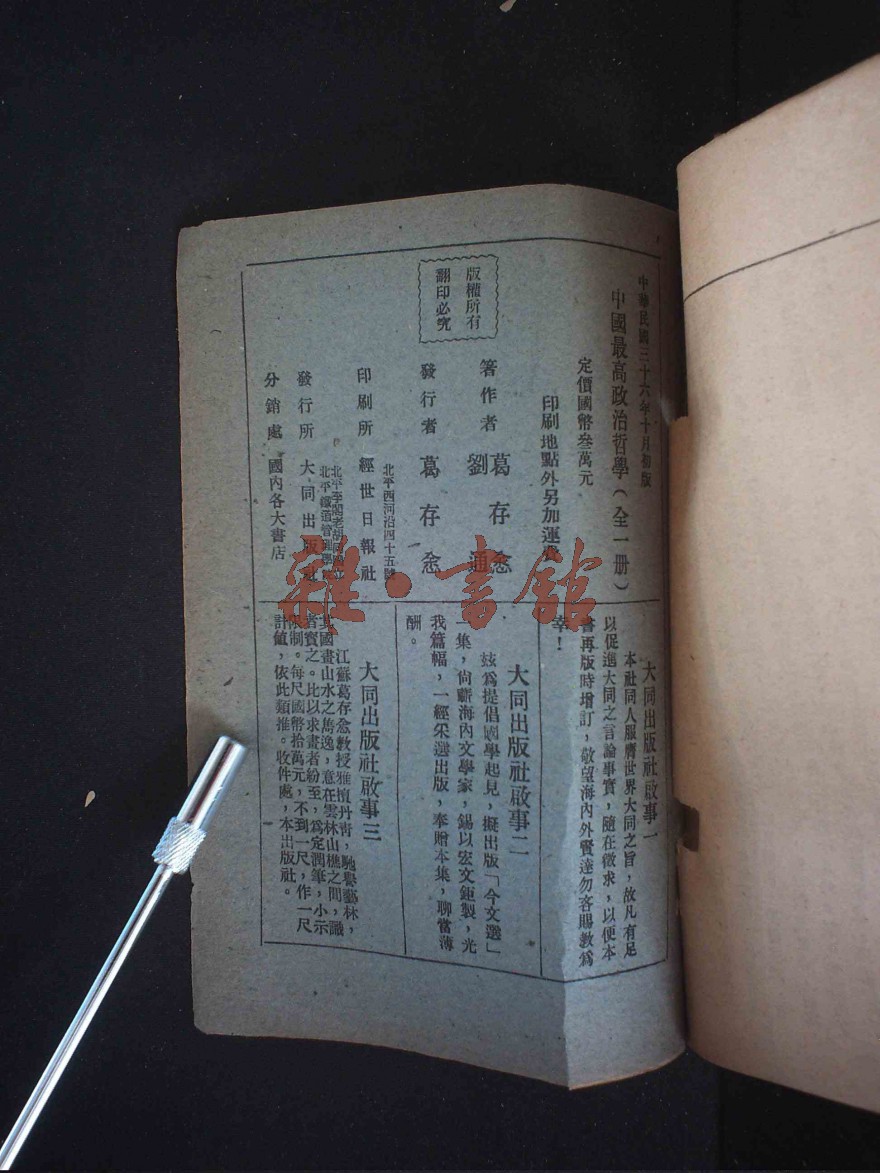 中華民國三十六年十月初版
中國最高政治哲學（全一册）
定價國幣叁萬元
印刷地點外另加運費
版權所有
翻印必究
著作者 葛存悆
劉通
發行者 葛存悆
北平西河沿四十五號
印刷所 經世日報社
北平李閣老胡同
北平鐵道管理學
發行所 大同出版社
分銷處 國內各大書店
大同出版社啟事一
本社同人服膺世界大同之旨，故凡有足
以促進大同之言論事實，隨在徵求，以便本
書再版時增訂，敬望海內外賢達勿吝賜教為
幸！
大同出版社啟事二
玆為提倡國學起見，擬出版「今文選」
一集，尙蘄海內文學家，錫以宏文鉅製，光
我篇幅，一經采選出版，奉贈本集，聊當薄
酬。
大同出版社啟事三
江蘇葛存悆敎授雅擅丹靑，馳譽藝林，
其國畫山水之雋逸，意在雲林山樵之間，識
者寶之。比以求畫者紛至，為定潤筆，小示
限制。每尺國幣拾萬元，不到一尺，作一尺
計値，依此類推。收件處，本出版社。
雜·書館